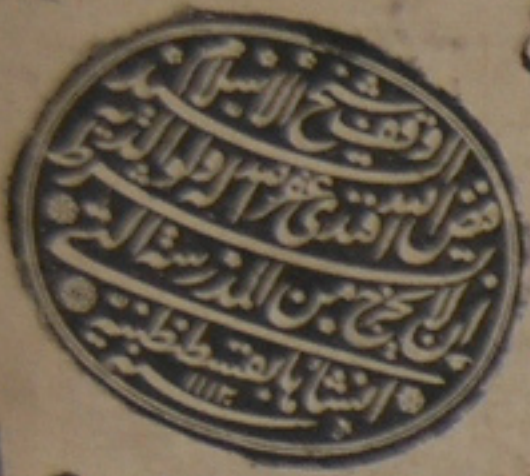 وقف شيخ الاسلام السيد
فيض الله افندى غفر الله له ولوالديه بشرط
ان لا يخرج من المدرسة التي
انشأها بقسطنطنية
سنة ١١١٣